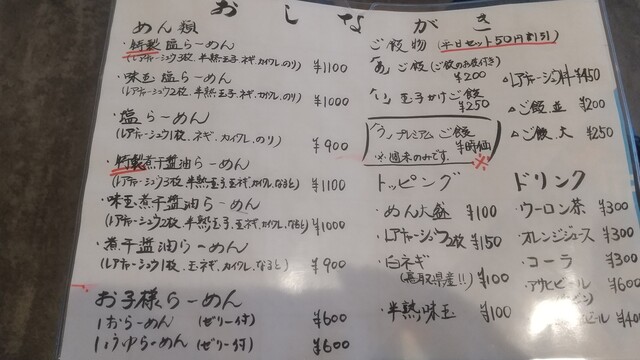 おしながき
めん類
・特製 塩らーめん
(レアチャーシュウ3枚、半熟玉子、ネギ、カイワレ、のり) ¥1100
・味玉 塩らーめん
(レアチャーシュウ2枚、半熟玉子、ネギ、カイワレ、のり) ¥1000
・塩らーめん
(レアチャーシュウ1枚、ネギ、カイワレ、のり) ¥900
・特製煮干醤油らーめん
(レアチャーシュウ3枚、半熟玉子、玉ネギ、カイワレ、なると) ¥1100
・味玉煮干醤油らーめん
(レアチャーシュウ2枚、半熟玉子、玉ネギ、カイワレ、なると) ¥1000
・煮干醤油らーめん
(レアチャーシュウ1枚、玉ネギ、カイワレ、なると) ¥900
お子様らーめん
しおらーめん (ゼリー付) ¥600
しょうゆらーめん (ゼリー付) ¥600
ご飯物 (平日セット50円割引)
「あ」ご飯 (ご飯のお供付き)
¥200
「い」玉子かけご飯
¥250
「う」プレミアムご飯
¥時価
※週末のみです。
・レアチャーシュウ丼 ¥450
△ご飯 並 ¥200
△ご飯 大 ¥250
トッピング
・めん大盛 ¥100
・レアチャーシュウ2枚 ¥150
・白ネギ
(鳥取県産!!) ¥100
・半熟味玉 ¥100
ドリンク
・ウーロン茶 ¥300
・オレンジジュース ¥300
・コーラ ¥300
・アサヒビール ¥600